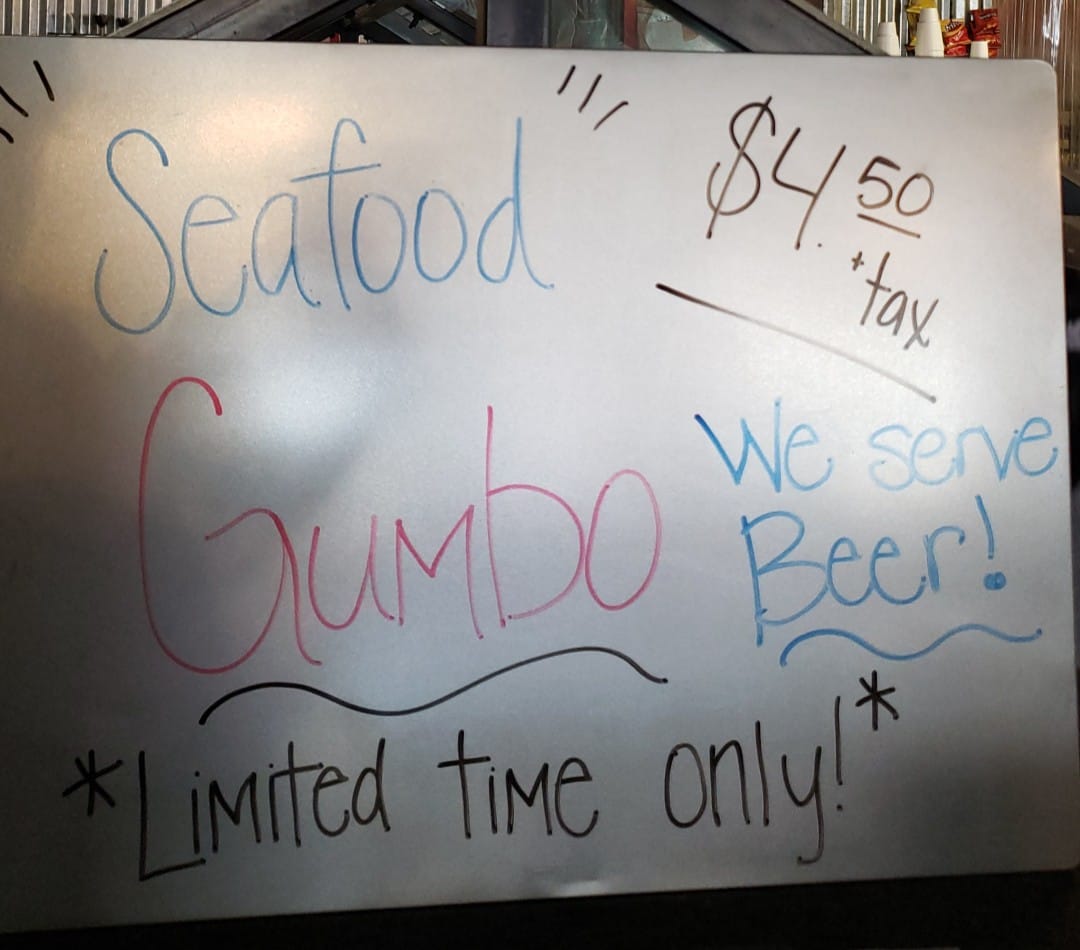 Seafood
$4.50
+tax
Gumbo
We serve
Beer!
*Limited time only!*